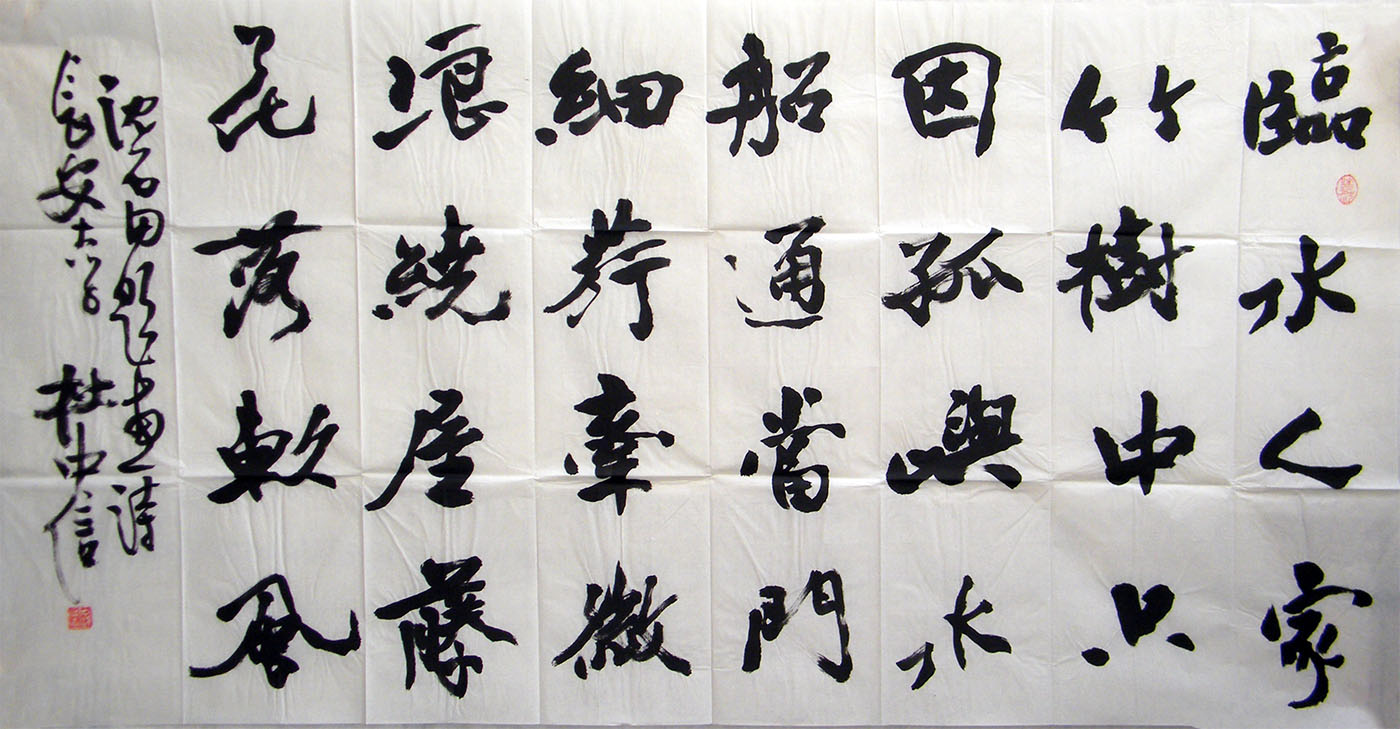 臨水人家
竹樹中只
因孤嶼水
船通當門
細荇牽微
浪繞屋藤
花落軟風
沈石田題畫詩
長安 杜中信